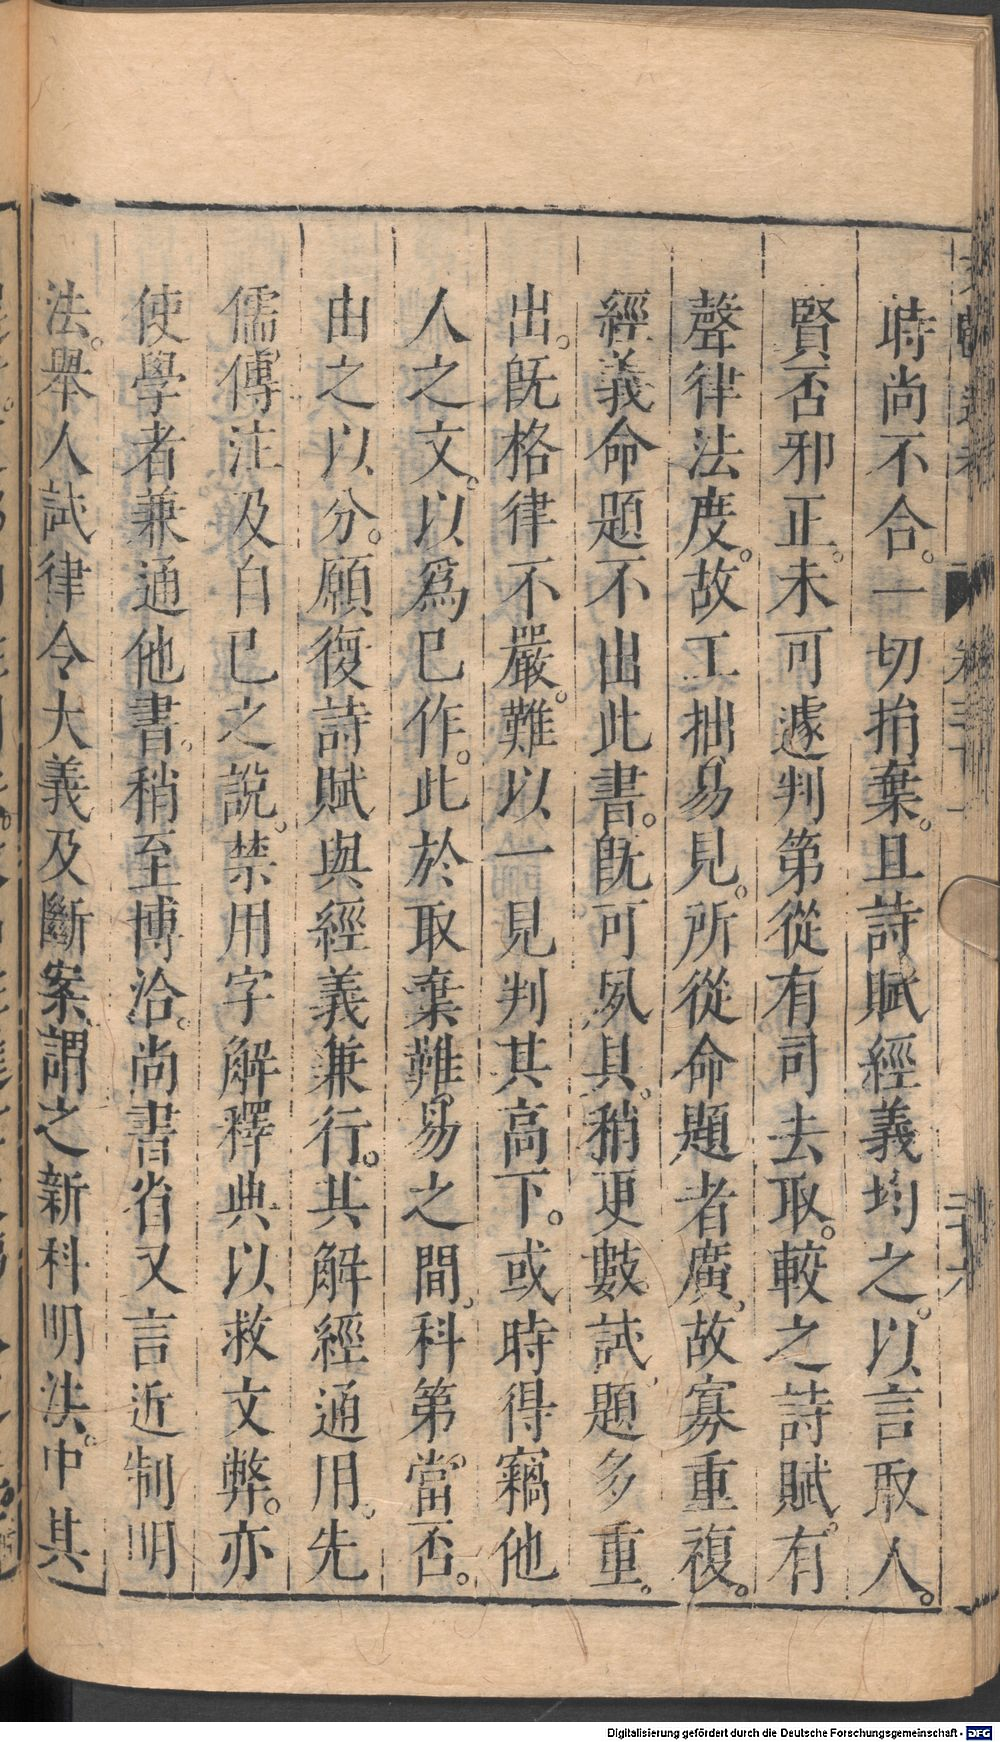 時尚不合。一切捐棄。且詩賦經義均之。以言取人。
賢否邪正。未可遽判第從有司去取。較之詩賦。有
聲律法度。故工拙易見。所從命題者廣。故寡重複。
經義命題不出此書。旣可夙具。稍更數試。題多重
出。旣格律不嚴。難以一見判其高下。或時得竊他
人之文。以爲已作。此於取棄難易之間。科第當否。
由之以分。願復詩賦與經義兼行。其解經通用。先
儒傳注及自已之說。禁用字解釋典以救文弊。亦
使學者兼通他書。稍至博洽。尚書省又言近制明
法。舉人試律令大義及斷案。謂之新科明法。中其
Digitalisierung gefördert durch die Deutsche Forschungsgemeinschaft - DFG